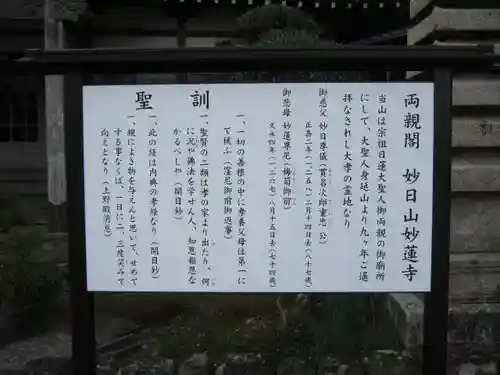 両親閣　妙日山妙蓮寺
当山は宗祖日蓮大聖人御両親の御廟所
にして、大聖人身延山より九ヶ年ご遙
拝なされし大孝の霊地なり
御慈父　妙日尊儀（貫名次郎重忠公）
正嘉二年（一二五八）二月十四日去（八十七歳）
御悲母　妙蓮尊尼（梅菊御前）
文永四年（一二六七）八月十五日去（七十四歳）
聖訓
一、一切の善根の中に孝養父母は第一に
て候ふ（窪尼御前御返事）
一、聖賢の二類は孝の家より出たり、何
に況や佛法を学せん人、知恩報恩な
かるべしや（開目抄）
一、此の経は内典の孝経なり（開目抄）
一、親によき物を与えんと思いて、せめて
する事なくば、一日に二、三度笑みて
向えとなり（上野殿消息）